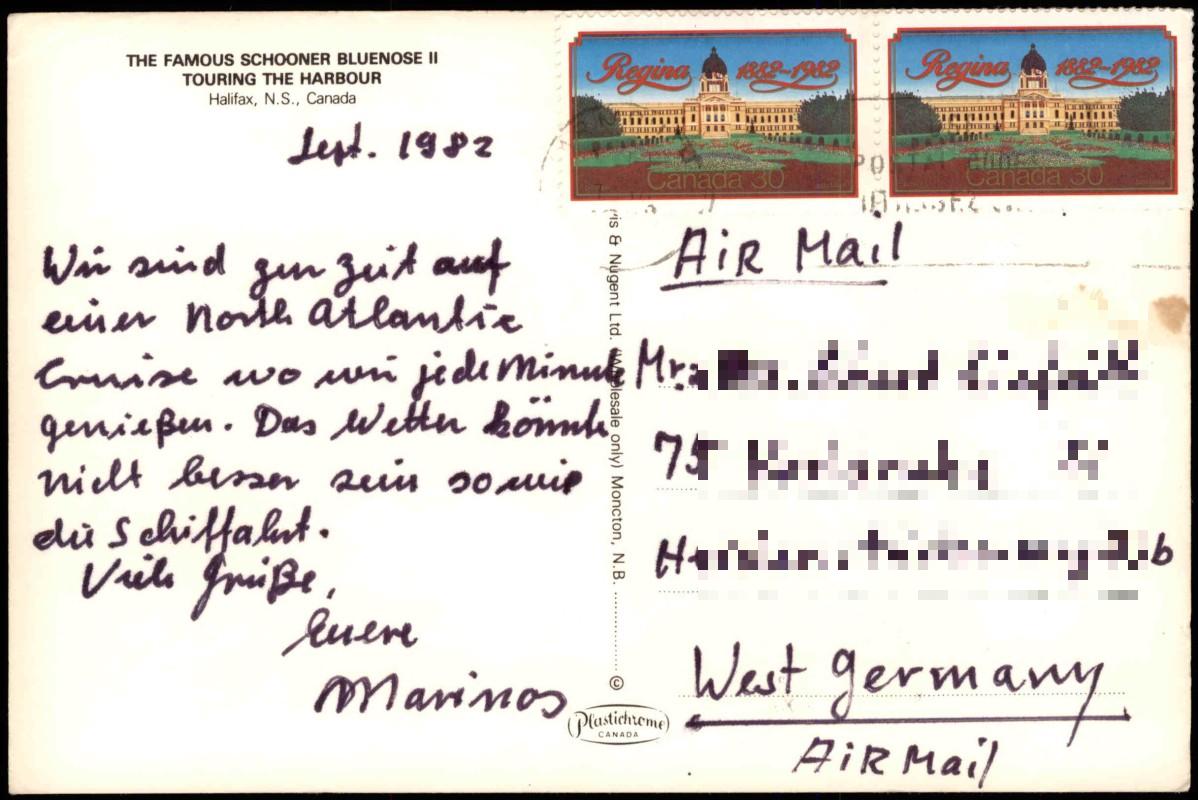 THE FAMOUS SCHOONER BLUENOSE II
TOURING THE HARBOUR
Halifax, N.S., Canada
Sept. 1982
Wir sind zur Zeit auf
einer North Atlantic
Cruise wo wir jede Minute
genießen. Das Wetter könnte
nicht besser sein so wie
die Schiffahrt.
Viele Grüße,
Euere
Marinos
Regina 1882-1982
Canada 30
Regina 1882-1982
Canada 30
AiR Mail
Mr.
75
West Germany
AiR Mail
& Nugent Ltd. (Wholesale only) Moncton, N.B.
©
Plastichrome
CANADA